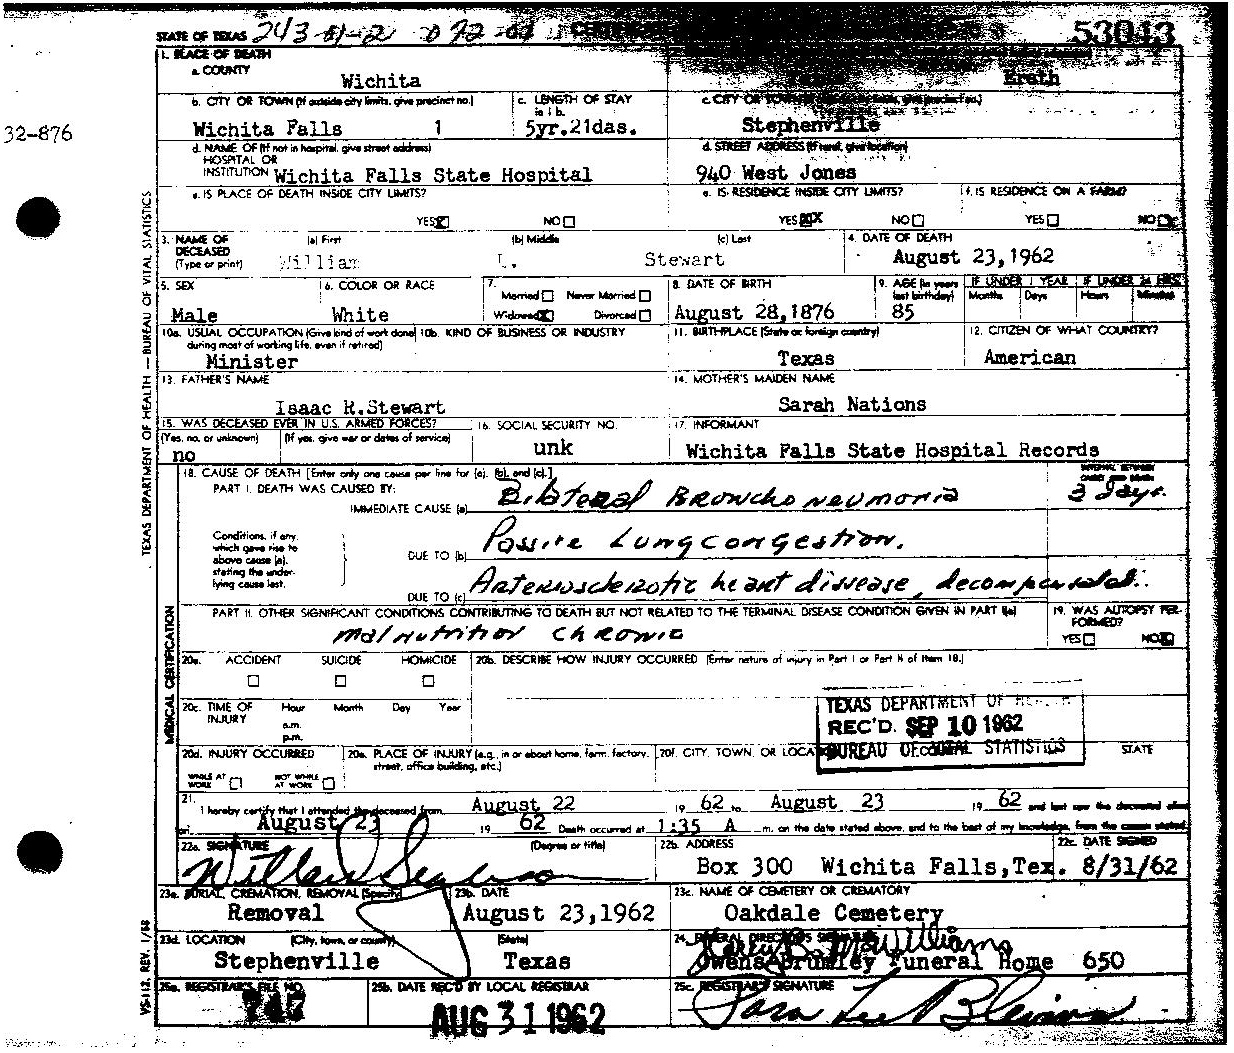 STATE OF TEXAS 243 53043
1. PLACE OF DEATH
a. COUNTY
Wichita Erath
b. CITY OR TOWN (If outside city limits, give precinct no.) c. LENGTH OF STAY in 1 b. c. CITY OR TOWN
Wichita Falls 1 5yr.21das. Stephenville
32-876
d. NAME OF (If not in hospital, give street address) d. STREET ADDRESS (If rural, give location)
HOSPITAL OR
INSTITUTION Wichita Falls State Hospital 940 West Jones
e. IS PLACE OF DEATH INSIDE CITY LIMITS? e. IS RESIDENCE INSIDE CITY LIMITS? f. IS RESIDENCE ON A FARM?
YES NO YES NO YES NO
3. NAME OF DECEASED (Type or print) (a) First (b) Middle (c) Last 4. DATE OF DEATH
William L. Stewart August 23,1962
5. SEX 6. COLOR OR RACE 7. Married Never Married Widowed Divorced 8. DATE OF BIRTH 9. AGE (In years last birthday) IF UNDER 1 YEAR Months Days IF UNDER 24 HRS. Hours Minutes
Male White August 28,1876 85
10a. USUAL OCCUPATION (Give kind of work done during most of working life, even if retired) 10b. KIND OF BUSINESS OR INDUSTRY 11. BIRTHPLACE (State or foreign country) 12. CITIZEN OF WHAT COUNTRY?
Minister Texas American
13. FATHER'S NAME 14. MOTHER'S MAIDEN NAME
Isaac R.Stewart Sarah Nations
15. WAS DECEASED EVER IN U.S. ARMED FORCES? 16. SOCIAL SECURITY NO. 17. INFORMANT
(Yes, no, or unknown) (If yes, give war or dates of service)
no unk Wichita Falls State Hospital Records
18. CAUSE OF DEATH [Enter only one cause per line for (a), (b), and (c).] INTERVAL BETWEEN ONSET AND DEATH
PART I. DEATH WAS CAUSED BY:
IMMEDIATE CAUSE (a) Bilateral Bronchoneumonia 3 days.
Conditions, if any, which gave rise to above cause (a), stating the underlying cause last.
DUE TO (b) Passive Lung congestion.
DUE TO (c) Arteriosclerotic heart disease, decompensated.
PART II. OTHER SIGNIFICANT CONDITIONS CONTRIBUTING TO DEATH BUT NOT RELATED TO THE TERMINAL DISEASE CONDITION GIVEN IN PART I(a) 19. WAS AUTOPSY PERFORMED?
Malnutrition chronic YES NO
20a. ACCIDENT SUICIDE HOMICIDE 20b. DESCRIBE HOW INJURY OCCURRED (Enter nature of injury in Part I or Part II of Item 18.)
20c. TIME OF INJURY Hour a.m. p.m. Month Day Year
TEXAS DEPARTMENT OF HEALTH
REC'D. SEP 10 1962
BUREAU OF VITAL STATISTICS
20d. INJURY OCCURRED WHILE AT WORK NOT WHILE AT WORK 20e. PLACE OF INJURY (e.g., in or about home, farm, factory, street, office building, etc.) 20f. CITY, TOWN, OR LOCATION STATE
21. I hereby certify that I attended the deceased from August 22 19 62 to August 23 19 62 and last saw the deceased alive
on August 23 19 62 Death occurred at 1:35 A m. on the date stated above, and to the best of my knowledge, from the causes stated.
22a. SIGNATURE (Degree or title) 22b. ADDRESS 22c. DATE SIGNED
Box 300 Wichita Falls,Tex. 8/31/62
23a. BURIAL, CREMATION, REMOVAL (Specify) 23b. DATE 23c. NAME OF CEMETERY OR CREMATORY
Removal August 23,1962 Oakdale Cemetery
23d. LOCATION (City, town, or county) (State) 24. FUNERAL DIRECTOR'S SIGNATURE
McWilliams
Stephenville Texas Owens Brumley Funeral Home 650
25a. REGISTRAR'S FILE NO. 25b. DATE REC'D BY LOCAL REGISTRAR 25c. REGISTRAR'S SIGNATURE
AUG 31 1962
TEXAS DEPARTMENT OF HEALTH — BUREAU OF VITAL STATISTICS
MEDICAL CERTIFICATION
VS-112, REV. 1/58